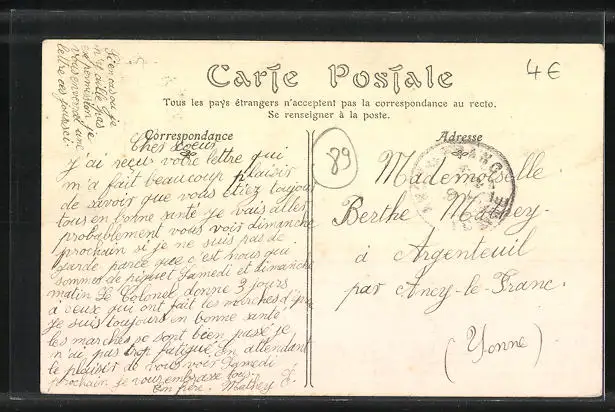 4€
Carte Postale
Tous les pays étrangers n'acceptent pas la correspondance au recto.
Se renseigner à la poste.
Correspondance
Adresse
89
Cher soeur
J'ai reçu votre lettre qui
m'a fait beaucoup plaisir
de savoir que vous étiez toujour
tous en bonne santé je vais aller
probablement vous voir dimanche
prochain si je ne suis pas de
garde parce que c'est nous qui
sommes de piquet Samedi et dimanche
matin Le Colonel donne 3 jours
à ceux qui ont fait les marches
Je suis toujours en bonne santé
les marches se sont bien passé je
n'ai pas trop fatigué en attendant
le plaisir de vous voir Samedi
prochain je vous embrasse tous
ton frère. Mathey
vous enverrai une
lettre ces jours ci
Mademoiselle
Berthe Mathey.
à Argenteuil
par Ancy-le-Franc.
(Yonne)